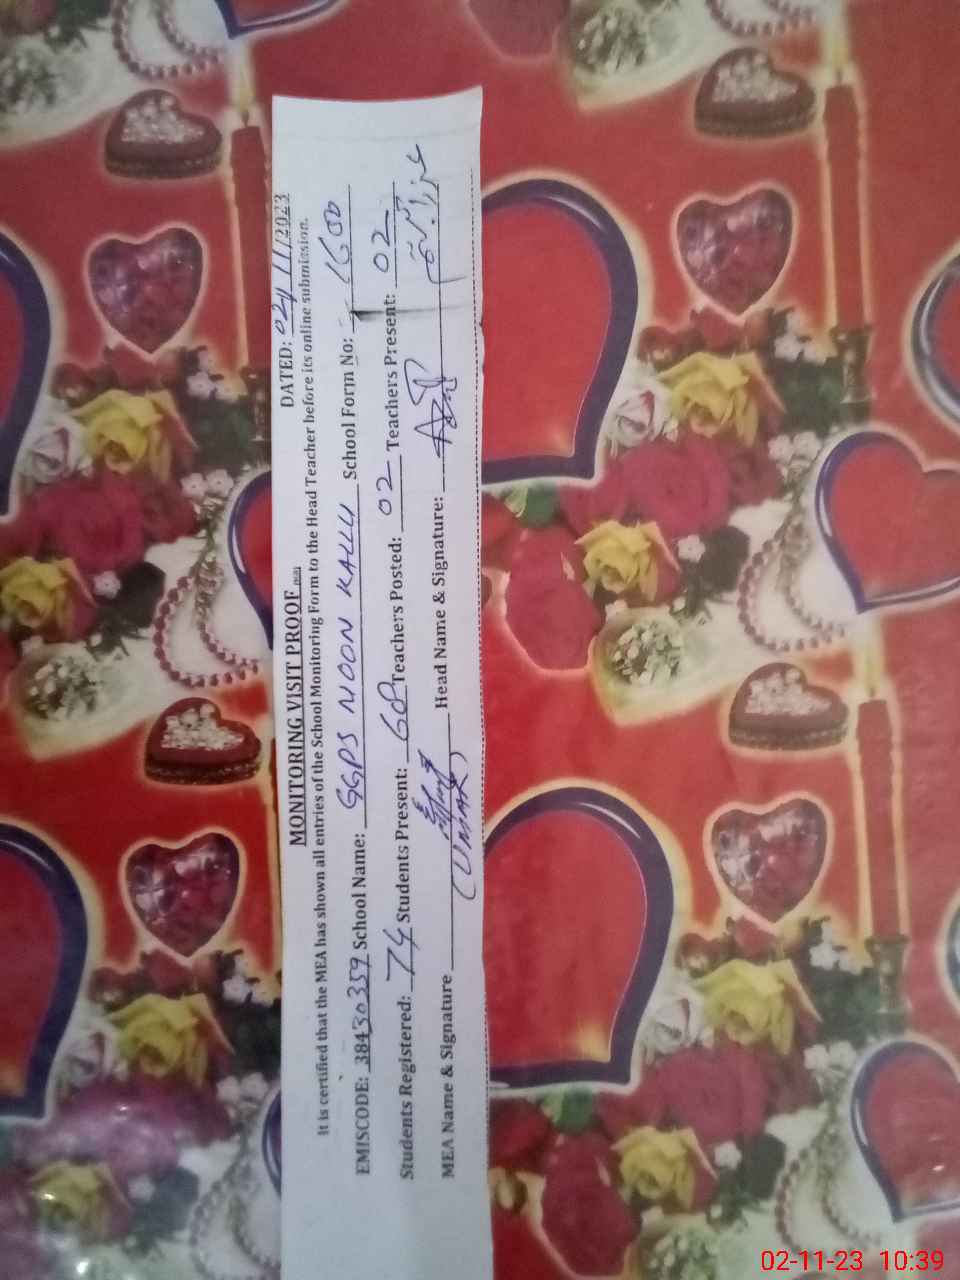 MONITORING VISIT PROOF DATED: 02/11/2023
It is certified that the MEA has shown all entries of the School Monitoring Form to the Head Teacher before its online submission.
EMISCODE: 38430359 School Name: GGPS NOON KALLU School Form No:
Students Registered: 74 Students Present: 60 Teachers Posted: 02 Teachers Present: 02
MEA Name & Signature (UMAR) Head Name & Signature:
02-11-23 10:39